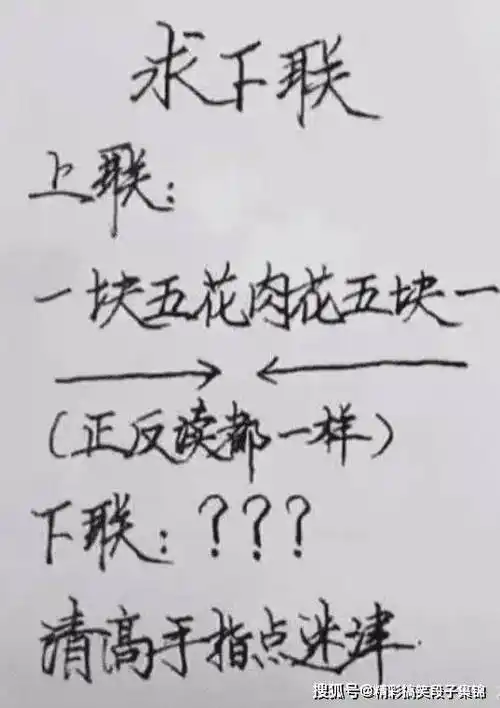 求下联
上联:
一块五花肉花五块一
(正反读都一样)
下联:???
请高手指点迷津
搜狐号@精彩搞笑段子集锦